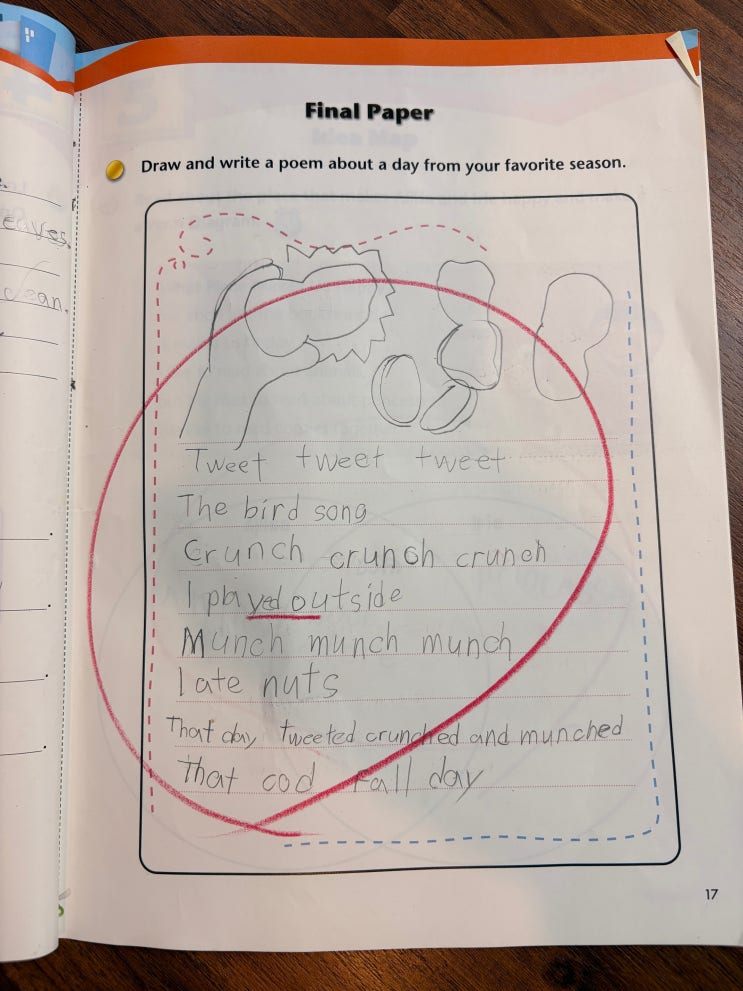 Final Paper
Draw and write a poem about a day from your favorite season.
eaves.
clean.
Tweet tweet tweet
The bird song
Crunch crunch crunch
I played outside
Munch munch munch
I ate nuts
That day tweeted crunched and munched
That cod fall day
17